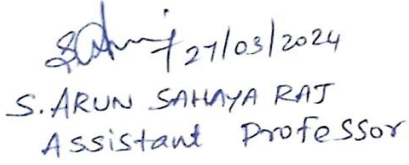 27/03/2024
S. ARUN SAHAYA RAJ
Assistant Professor